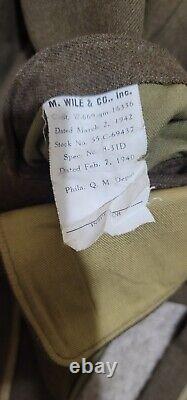 M. WILE & CO., Inc.
Cont. W-669-qm-16336
Dated March 2, 1942
Stock No. 55-C-69437
Spec. No. 8-31D
Dated Feb. 2, 1940
Phila. Q. M. Depot
© ebay